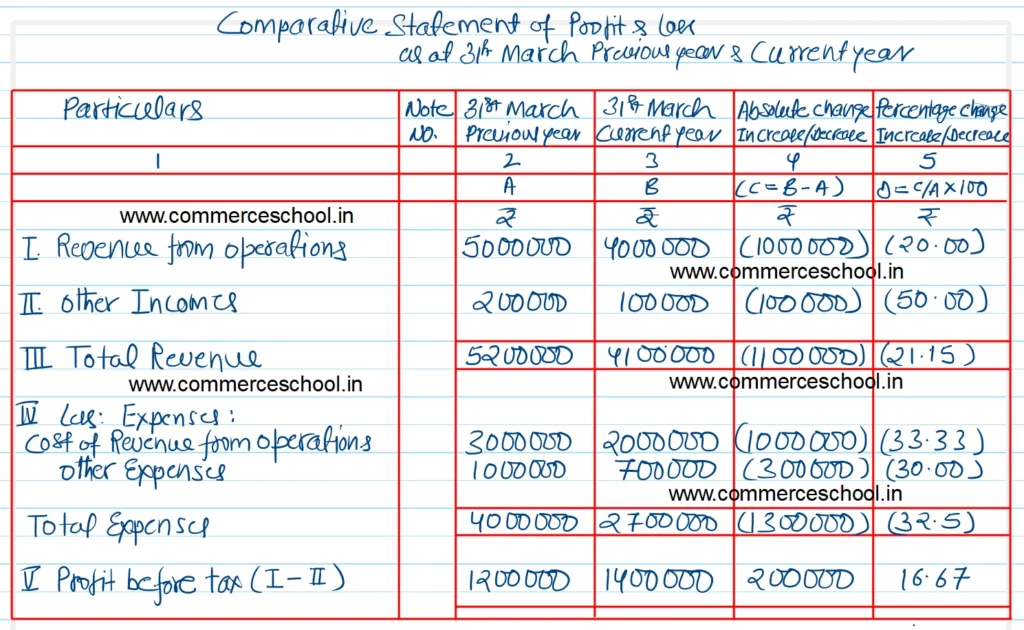 Comparative Statement of Profit & Loss
as at 31st March Previous year & Current year
Particulars Note No. 31st March Previous year 31st March Current year Absolute change Increase/Decrease Percentage change Increase/Decrease
1 2 3 4 5
A B (C=B-A) D=C/A×100
www.commerceschool.in ₹ ₹ ₹ ₹
I. Revenue from operations 5000000 4000000 (1000000) (20.00)
www.commerceschool.in
II. Other Incomes 200000 100000 (100000) (50.00)
III Total Revenue 5200000 4100000 (1100000) (21.15)
www.commerceschool.in www.commerceschool.in
IV Less: Expenses:
Cost of Revenue from operations 3000000 2000000 (1000000) (33.33)
other Expenses 1000000 700000 (300000) (30.00)
www.commerceschool.in
Total Expenses 4000000 2700000 (1300000) (32.5)
V Profit before tax (I-II) 1200000 1400000 200000 16.67